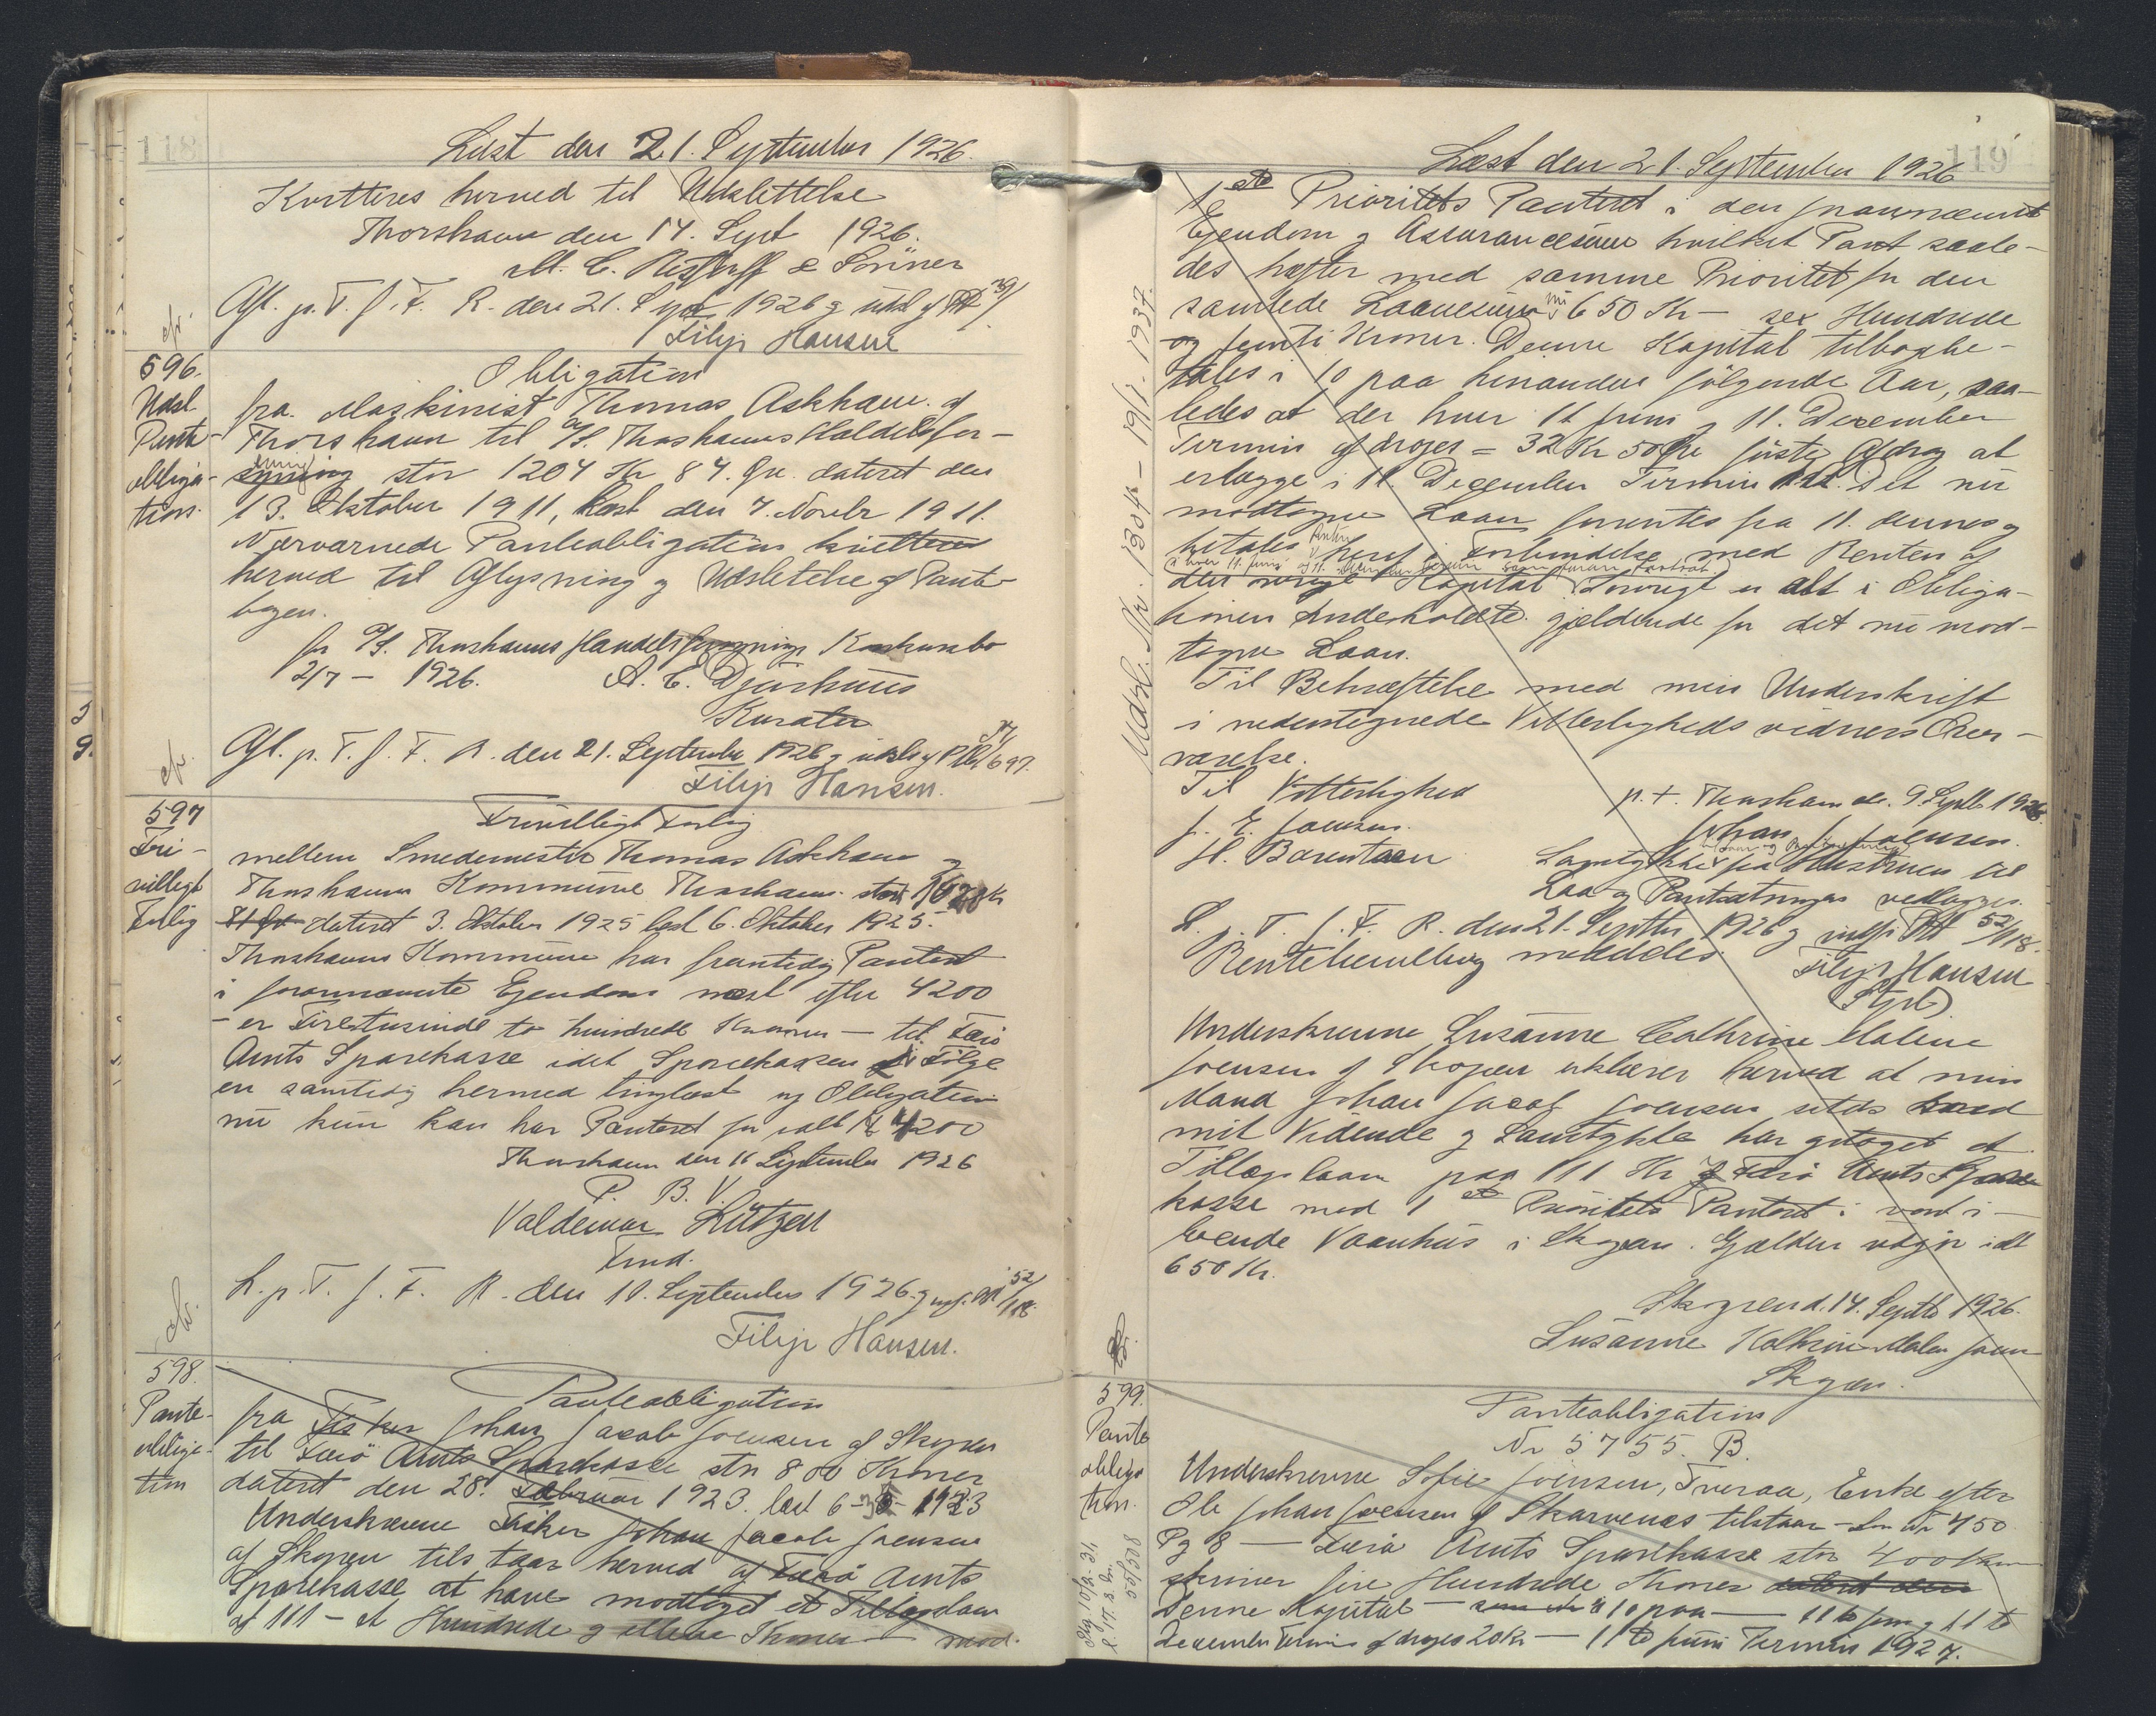 118
Læst den 21. September 1926.
Kvitteres herved til Udslettelse
Thorshavn den 14. Sept 1926.
M. C. Restorff & Sönner
Afl. p. T. f. F. R. den 21. Sept 1926 g
Filip Hansen
cfr.
596.
Udsl.
Pante-
obliga-
tion.
Obligation
fra Maskinist Thomas Askham af
Thorshavn til A/S. Thorshavns Handelsfor-
syning stor 1204 Kr 84. Øre dateret den
13. Oktober 1911, læst den 7. Novbr 1911.
Nærværende Panteobligation kvitteres
herved til Aflysning og Udslettelse af Pante-
bogen.
for A/S. Thorshavns Handelsforsynings Konkursbo
2/7 - 1926. A. C. Djurhuus
Kurator
Afl. p. T. f. F. R. den 21. September 1926 g
Filip Hansen.
cfr.
597
Fri-
villigt
Forlig
Frivilligt Forlig
mellem Smedemester Thomas Askham og
Thorshavns Kommune Thorshavn stort 1628 Kr
81 Øre dateret 3. Oktober 1925 læst 6. Oktober 1925.
Thorshavns Kommune har fremtidig Panteret
i forannævnte Ejendom næst efter 4200
- er Firetusinde to hundrede Kroner - til Færø
Amts Sparekasse idet Sparekassen ifölge
en samtidig hermed tinglæst ny Obligation
nu kun kan har Panteret for ialt Kr 4200
Thorshavn den 11 September 1926
P. B. V.
Valdemar Lützen
Fmd.
L. p. T. f. F. R. den 10. September 1926. g 52/118.
Filip Hansen.
cfr.
598.
Pante-
obliga-
tion
Panteobligation
fra Fisker Johan Jacob Joensen af Skopen
til Færö Amts Sparekasse stor 800 Kroner
dateret den 28. Februar 1923. læst 6-3-1923
Underskrevne Fisker Johan Jacob Joensen
af Skopen tilstaar herved af Færö Amts
Sparekasse at have modtaget et Tillægslaan
af 111 - et Hundrede g elleve Kroner - mod.
119
Læst den 21. September 1926
1ste Prioritets Panteret i den forannævnte
Ejendom g Assurancesum hvilket Pant saale-
des hæfter med samme Prioritet for den
samlede Laanesum nu 650 Kr - sex Hundrede
og femti Kroner. Denne Kapital tilbagebe-
tales i 10 paa hinanden fölgende Aar, saa-
ledes at der hver 11 Juni g 11. December
Termin afdrages = 32 Kr 50 Øre förste Afdrag at
erlægge i 11. December Termin Det nu
modtagne Laan forrentes fra 11. dennes g
betales Renten heraf i Forbindelse med Renten af
den övrige Kapital i hver 11. Juni og 11. December Termin som foran fastsat. Iövrigt er alt i Obliga-
tionen Indeholdte gjældende for det nu mod-
tagne Laan.
Til Bekræftelse med min Underskrift
i nedentegnede Vitterligheds vidners Over-
værelse.
Til Vitterlighed p. t. Thorshavn d. 9. Septb 1926.
J. E. Joensen. Johan J. Joensen.
H. Barentsen
Samtykke fra Hustruen til
Laan g Pantsætningen vedlægges.
L. p. T. f. F. R. den 21. Septbr 1926 g indf. i 52/118.
Rentehenvisning meddeles. Filip Hansen
Underskrevne Susanne Cathrine Malene
Joensen af Skopen erklærer herved at min
Mand Johan Jacob Joensen med
mit Vidende g Samtykke har optaget et
Tillægslaan paa 111 Kr af Færö Amts Spare
kasse med 1ste Prioritets Panteret i vort i-
boende Vaanhus i Skopen. Gælden udgör ialt
650 Kr.
Skopen d. 14. Septb 1926.
Susanne Kathrine Malene Joen
Skopen.
Udsl. Skr. 1304 - 19/1. 1937.
599.
Pante
obliga
tion.
Panteobligation
Nr 5755. B.
Underskrevne Sofie Joensen, Tveraa, Enke efter
Ole Johan Joensen af Skarvenes tilstaar - Lm Nr 450
Pg 8 - Færö Amts Sparekasse stor 400 Kr
skriver fire Hundrede Kroner dateret den
Denne Kapital - 10 paa - 11te Juni g 11te
December Termin afdrages 20 Kr - 11te Juni Termin 1927.